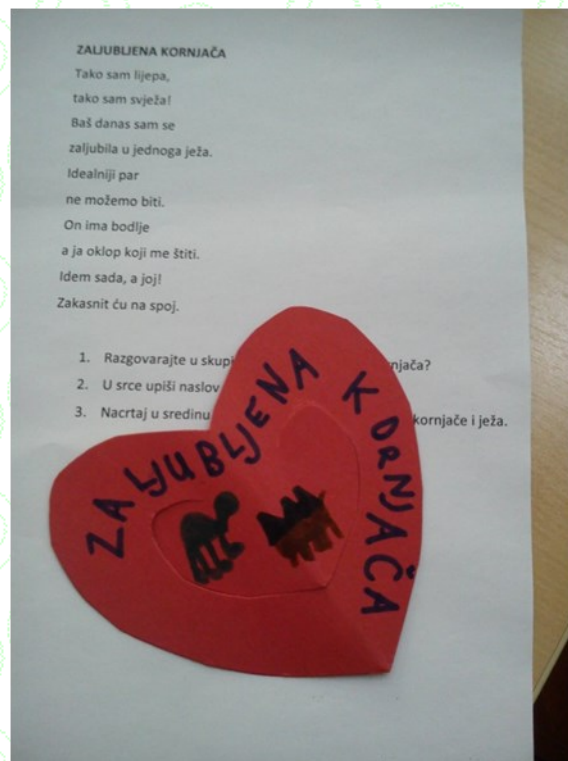 ZALJUBLJENA KORNJAČA
Tako sam lijepa,
tako sam svježa!
Baš danas sam se
zaljubila u jednoga ježa.
Idealniji par
ne možemo biti.
On ima bodlje
a ja oklop koji me štiti.
Idem sada, a joj!
Zakasnit ću na spoj.
1. Razgovarajte u skupi njača?
2. U srce upiši naslov
3. Nacrtaj u sredinu kornjače i ježa.
ZALJUBLJENA KORNJAČA